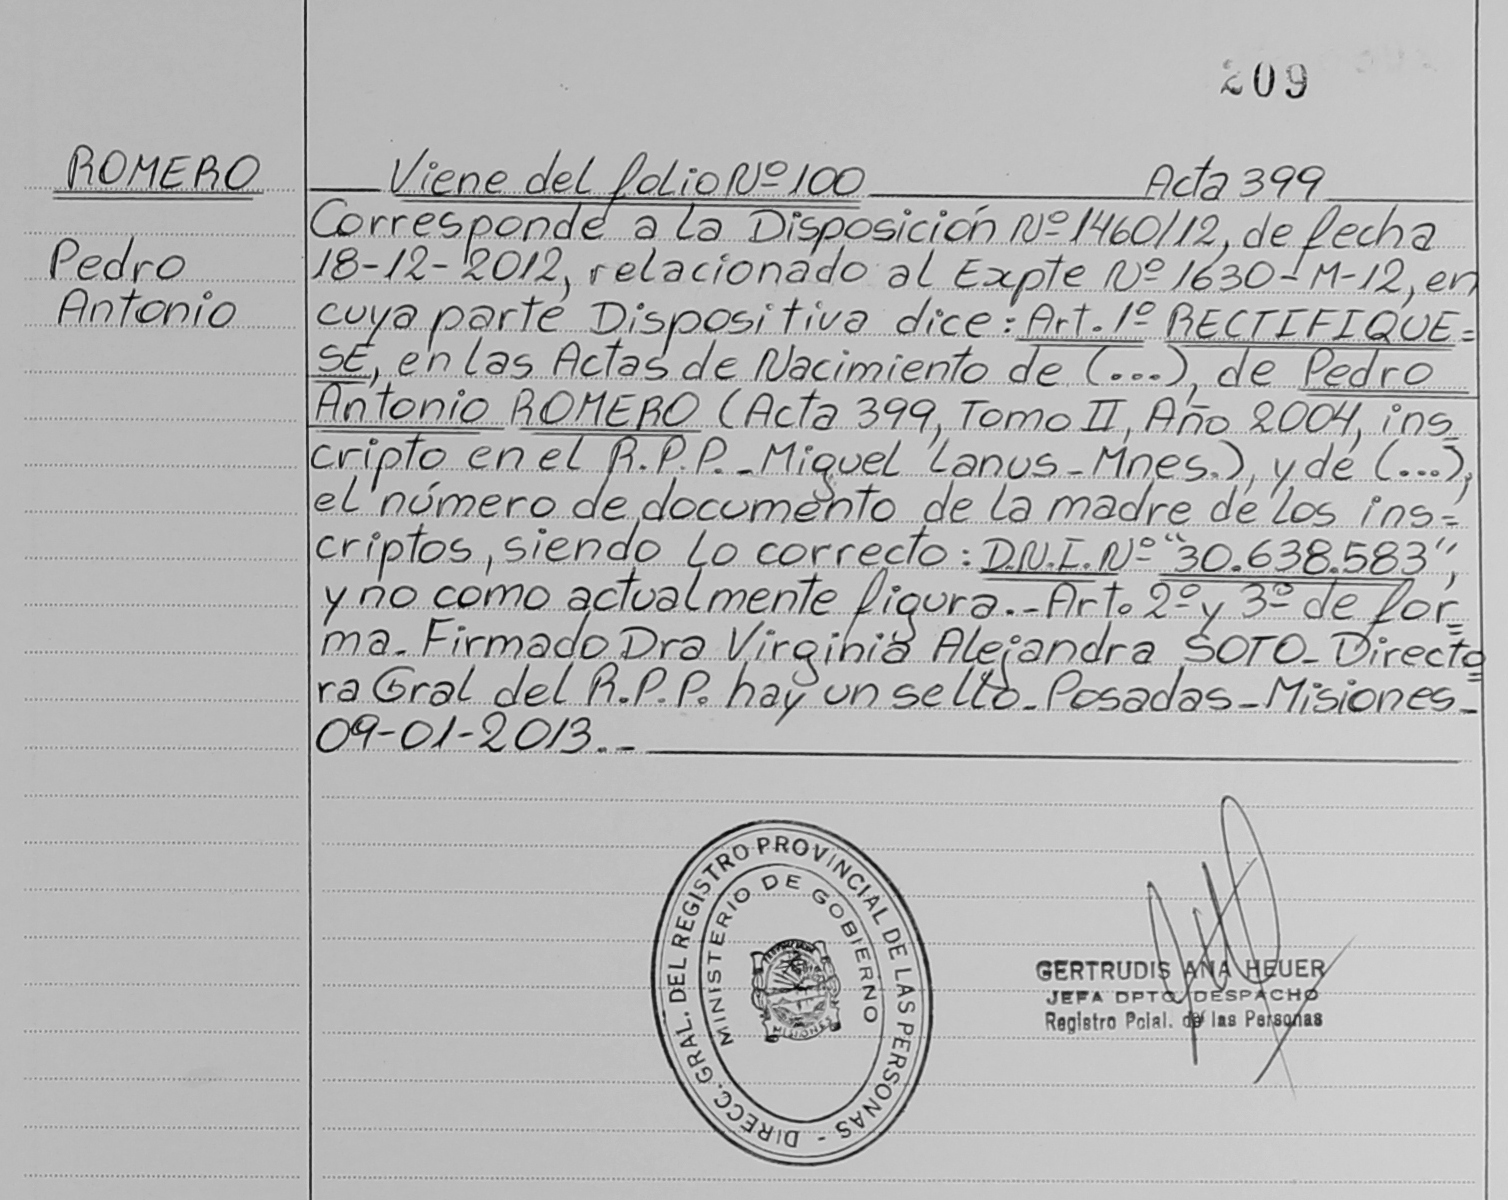 209
ROMERO
Pedro
Antonio
Viene del folio Nº 100 Acta 399
Corresponde a la Disposición Nº 1460/12, de fecha
18-12-2012, relacionado al Expte Nº 1630-M-12, en
cuya parte Dispositiva dice: Art. 1º RECTIFIQUE=
SE, en las Actas de Nacimiento de (...), de Pedro
Antonio ROMERO (Acta 399, Tomo II, Año 2004, ins=
cripto en el R.P.P.-Miguel Lanus-Mnes.), y de (...),
el número de documento de la madre de los ins=
criptos, siendo lo correcto: D.N.I. Nº "30.638.583",
y no como actualmente figura.-Art. 2º y 3º de for=
ma-Firmado Dra Virginia Alejandra SOTO-Directo=
ra Gral del R.P.P. hay un sello-Posadas-Misiones-
09-01-2013.-
DIRECC. GRAL. DEL REGISTRO PROVINCIAL DE LAS PERSONAS -
MINISTERIO DE GOBIERNO
MISIONES
GERTRUDIS ANA HEUER
JEFA DPTO DESPACHO
Registro Pcial. de las Personas